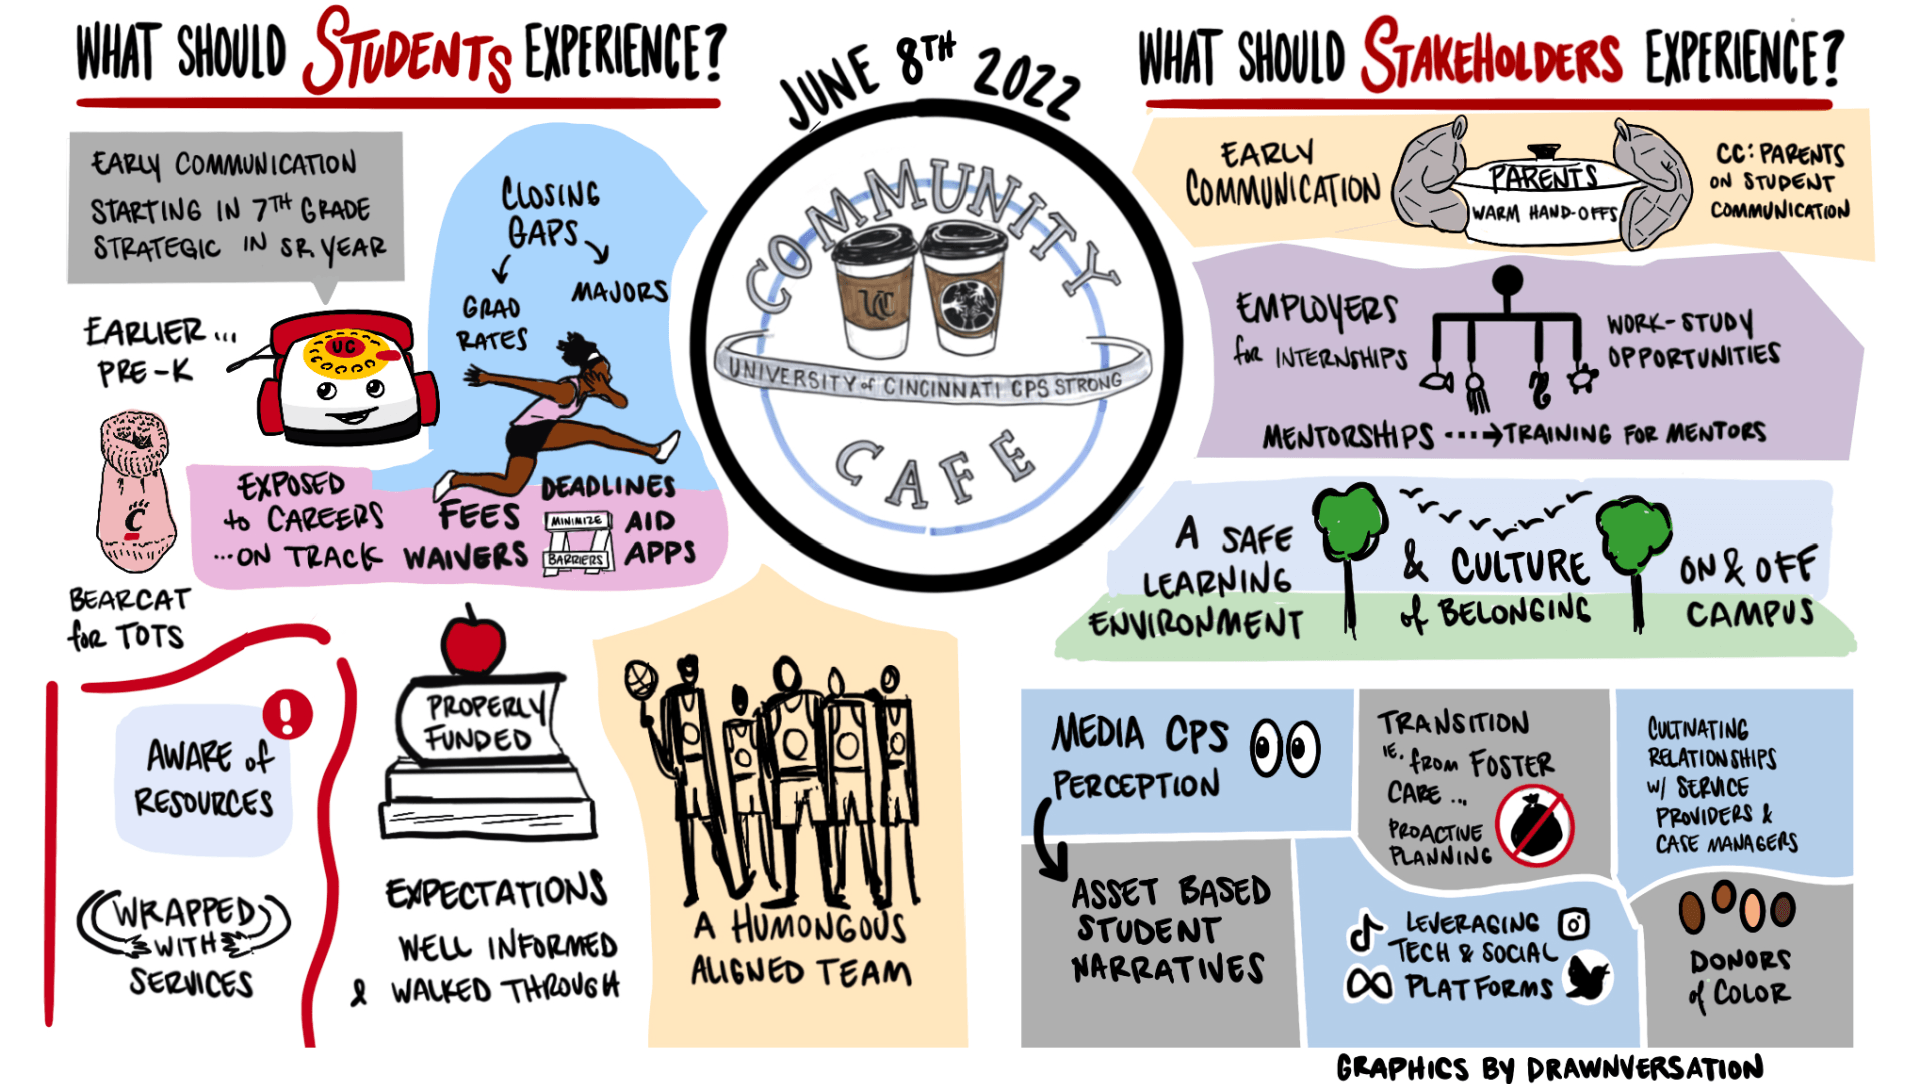 WHAT SHOULD STUDENTS EXPERIENCE?
EARLY COMMUNICATION
STARTING IN 7TH GRADE
STRATEGIC IN SR. YEAR
EARLIER ...
PRE-K
UC
C
BEARCAT
for TOTS
CLOSING
GAPS
GRAD
RATES
MAJORS
EXPOSED
to CAREERS
...ON TRACK
FEES
WAIVERS
DEADLINES
MINIMIZE
BARRIERS
AID
APPS
!
AWARE of
RESOURCES
WRAPPED
WITH
SERVICES
PROPERLY
FUNDED
EXPECTATIONS
WELL INFORMED
& WALKED THROUGH
A HUMONGOUS
ALIGNED TEAM
JUNE 8TH 2022
COMMUNITY
UC
UNIVERSITY of CINCINNATI CPS STRONG
CAFE
WHAT SHOULD STAKEHOLDERS EXPERIENCE?
EARLY
COMMUNICATION
PARENTS
WARM HAND-OFFS
CC: PARENTS
ON STUDENT
COMMUNICATION
EMPLOYERS
for INTERNSHIPS
WORK-STUDY
OPPORTUNITIES
MENTORSHIPS ---→ TRAINING FOR MENTORS
A SAFE
LEARNING
ENVIRONMENT
& CULTURE
of BELONGING
ON & OFF
CAMPUS
MEDIA CPS
PERCEPTION
ASSET BASED
STUDENT
NARRATIVES
TRANSITION
IE. from FOSTER
CARE ...
PROACTIVE
PLANNING
CULTIVATING
RELATIONSHIPS
W/ SERVICE
PROVIDERS &
CASE MANAGERS
LEVERAGING
TECH & SOCIAL
PLATFORMS
DONORS
of COLOR
GRAPHICS BY DRAWNVERSATION